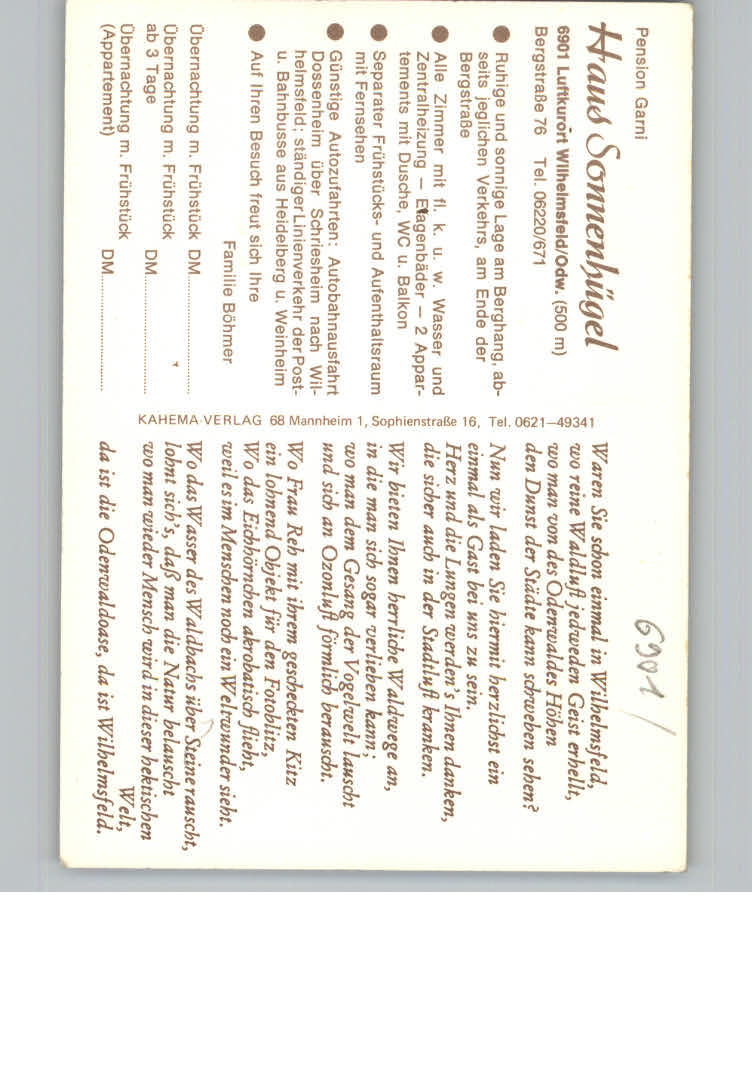 Pension Garni
Haus Sonnenhügel
6901 Luftkurort Wilhelmsfeld/Odw. (500 m)
Bergstraße 76 Tel. 06220/671
● Ruhige und sonnige Lage am Berghang, ab-
seits jeglichen Verkehrs, am Ende der
Bergstraße
● Alle Zimmer mit fl. k. u. w. Wasser und
Zentralheizung – Etagenbäder – 2 Appar-
tements mit Dusche, WC u. Balkon
● Separater Frühstücks- und Aufenthaltsraum
mit Fernsehen
● Günstige Autozufahrten: Autobahnausfahrt
Dossenheim über Schriesheim nach Wil-
helmsfeld; ständiger Linienverkehr der Post-
u. Bahnbusse aus Heidelberg u. Weinheim
● Auf Ihren Besuch freut sich Ihre
Familie Böhmer
Übernachtung m. Frühstück DM....................
Übernachtung m. Frühstück
ab 3 Tage DM....................
Übernachtung m. Frühstück
(Appartement) DM....................
KAHEMA-VERLAG 68 Mannheim 1, Sophienstraße 16, Tel. 0621–49341
6901
Waren Sie schon einmal in Wilhelmsfeld,
wo reine Waldluft jedweden Geist erhellt,
wo man von des Odenwaldes Höhen
den Dunst der Städte kann schweben sehen?
Nun wir laden Sie hiermit herzlichst ein
einmal als Gast bei uns zu sein.
Herz und die Lungen werden's Ihnen danken,
die sicher auch in der Stadtluft kranken.
Wir bieten Ihnen herrliche Waldwege an,
in die man sich sogar verlieben kann;
wo man dem Gesang der Vogelwelt lauscht
und sich an Ozonluft förmlich berauscht.
Wo Frau Reh mit ihrem gescheckten Kitz
ein lohnend Objekt für den Fotoblitz,
Wo das Eichhörnchen akrobatisch flieht,
weil es im Menschen noch ein Weltwunder sieht.
Wo das Wasser des Waldbachs über Steine rauscht,
lohnt sich's, daß man die Natur belauscht
wo man wieder Mensch wird in dieser hektischen
Welt,
da ist die Odenwaldoase, da ist Wilhelmsfeld.